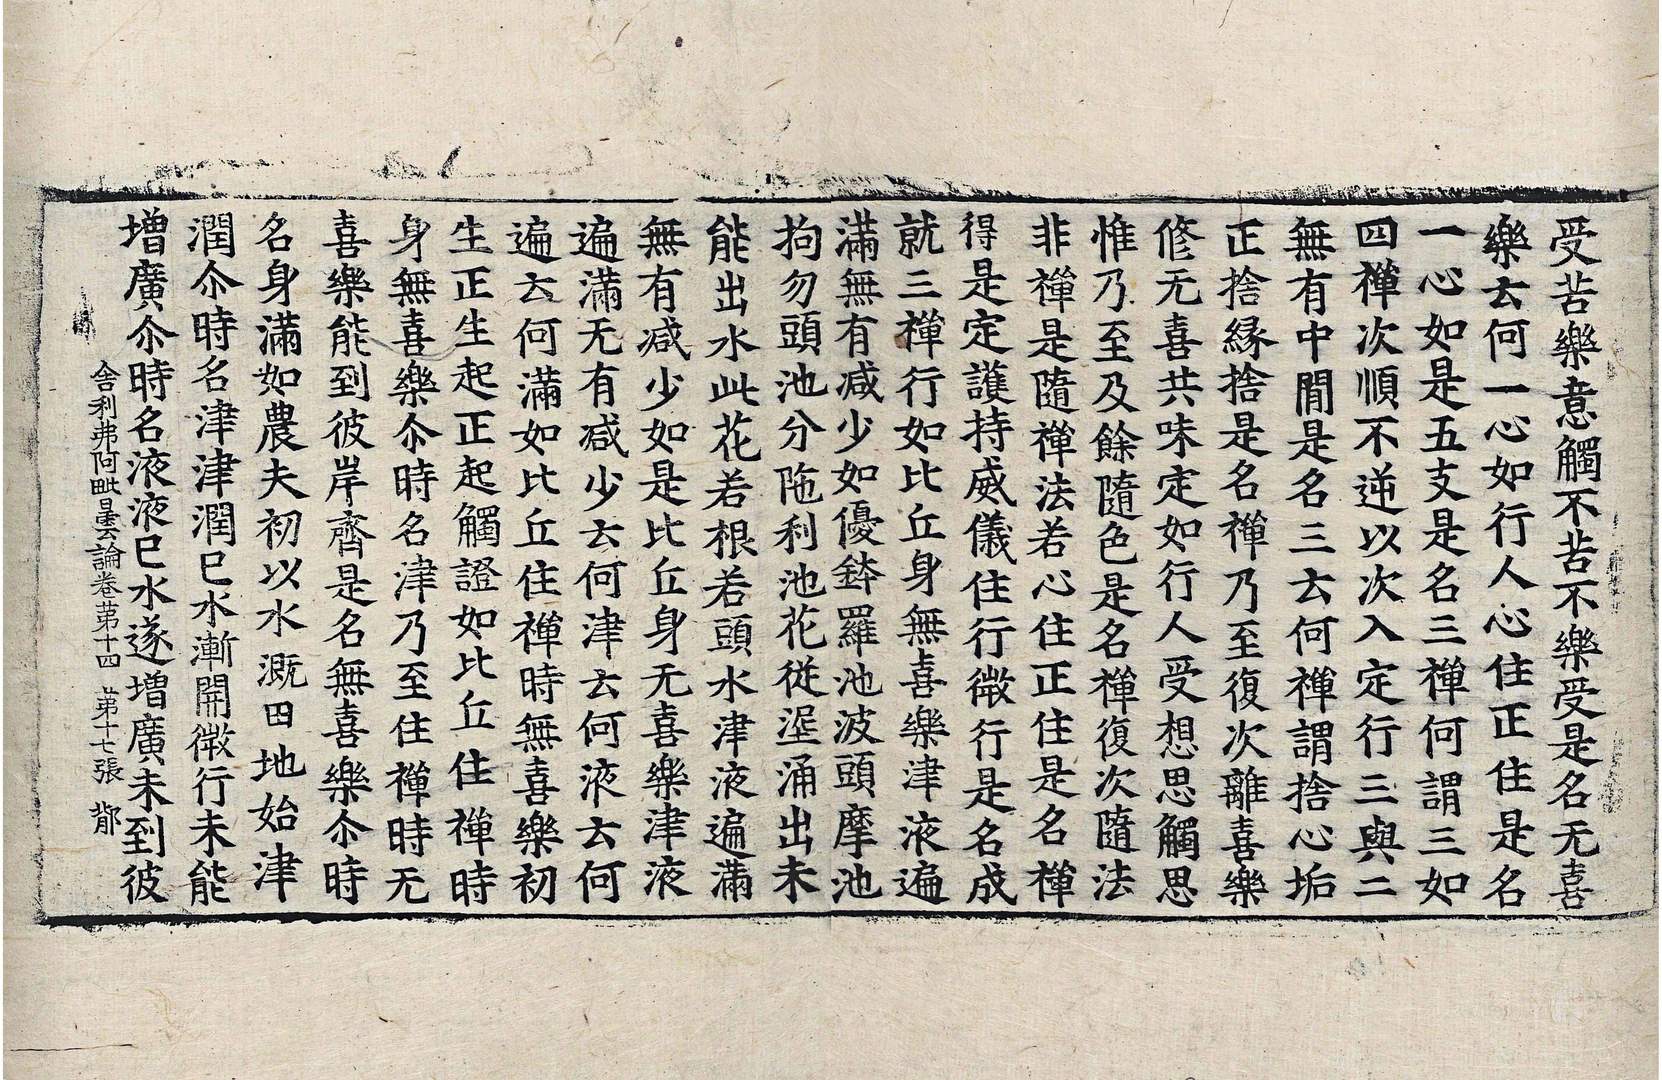 受苦樂意觸不苦不樂受是名无喜
樂云何一心如行人心住正住是名
一心如是五支是名三禪何謂三如
四禪次順不逆以次入定行三與二
無有中間是名三云何禪謂捨心垢
正捨緣捨是名禪乃至復次離喜樂
修无喜共味定如行人受想思觸思
惟乃至及餘隨色是名禪復次隨法
非禪是隨禪法若心住正住是名禪
得是定護持威儀住行微行是名成
就三禪行如比丘身無喜樂津液遍
滿無有减少如優鉢羅池波頭摩池
拘勿頭池分陁利池花從埿涌出未
能出水此花若根若頭水津液遍滿
無有减少如是比丘身无喜樂津液
遍滿无有减少云何津云何液云何
遍云何滿如比丘住禪時無喜樂初
生正生起正起觸證如比丘住禪時
身無喜樂尒時名津乃至住禪時无
喜樂能到彼岸齊是名無喜樂尒時
名身滿如農夫初以水溉田地始津
潤尒時名津津潤已水漸開微行未能
增廣尒時名液液已水遂增廣未到彼
舍利弗阿毗曇論卷苐十四 苐十七張